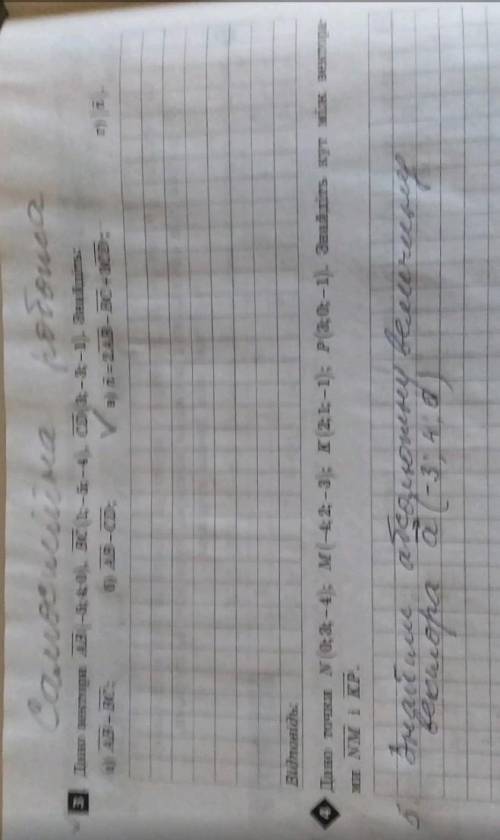 Самостійна робота
3 Дано вектори AB(–3; 4; 0), BC(1; –5; –4), CD(3; –3; –1). Знайдіть:
а) AB – BC; б) AB – CD; в) n = 2AB – BC + 3CD; г) |n|.
Відповідь:
4 Дано точки N(0; 3; –4); M(–4; 2; –3); K(2; 1; –1); P(3; 0; –1). Знайдіть кут між вектора-
ми NM і KP.
5 Знайти абсолютну величину
вектора a (-3; 4, 0)